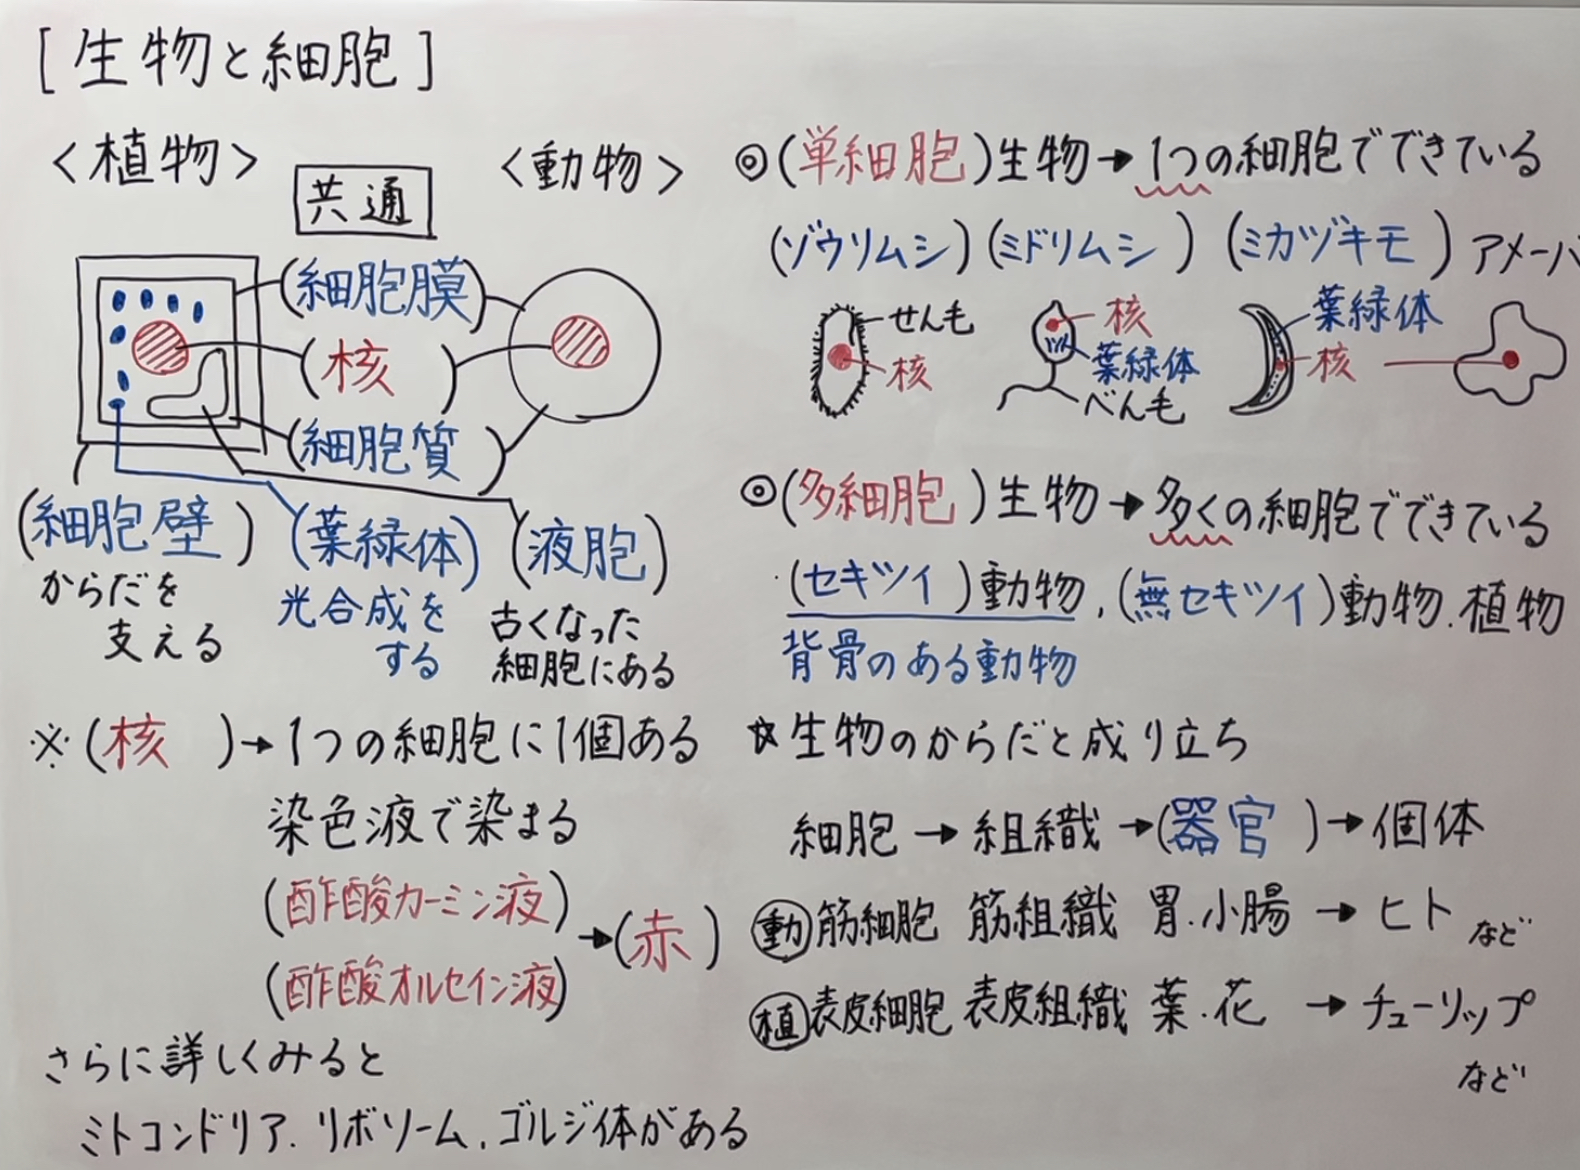 [生物と細胞]
<植物>
共通
<動物>
(細胞膜)
(核)
(細胞質)
(細胞壁)
からだを
支える
(葉緑体)
光合成を
する
(液胞)
古くなった
細胞にある
※(核)→1つの細胞に1個ある
染色液で染まる
(酢酸カーミン液)
(酢酸オルセイン液)
→(赤)
さらに詳しくみると
ミトコンドリア.リボソーム.ゴルジ体がある
◎(単細胞)生物→1つの細胞でできている
(ゾウリムシ)(ミドリムシ)(ミカヅキモ)アメーバ
せん毛
核
核
葉緑体
べん毛
葉緑体
核
◎(多細胞)生物→多くの細胞でできている
(セキツイ)動物.(無セキツイ)動物.植物
背骨のある動物
☆生物のからだと成り立ち
細胞→組織→(器官)→個体
動 筋細胞 筋組織 胃.小腸→ヒト など
植 表皮細胞 表皮組織 葉.花→チューリップ
など